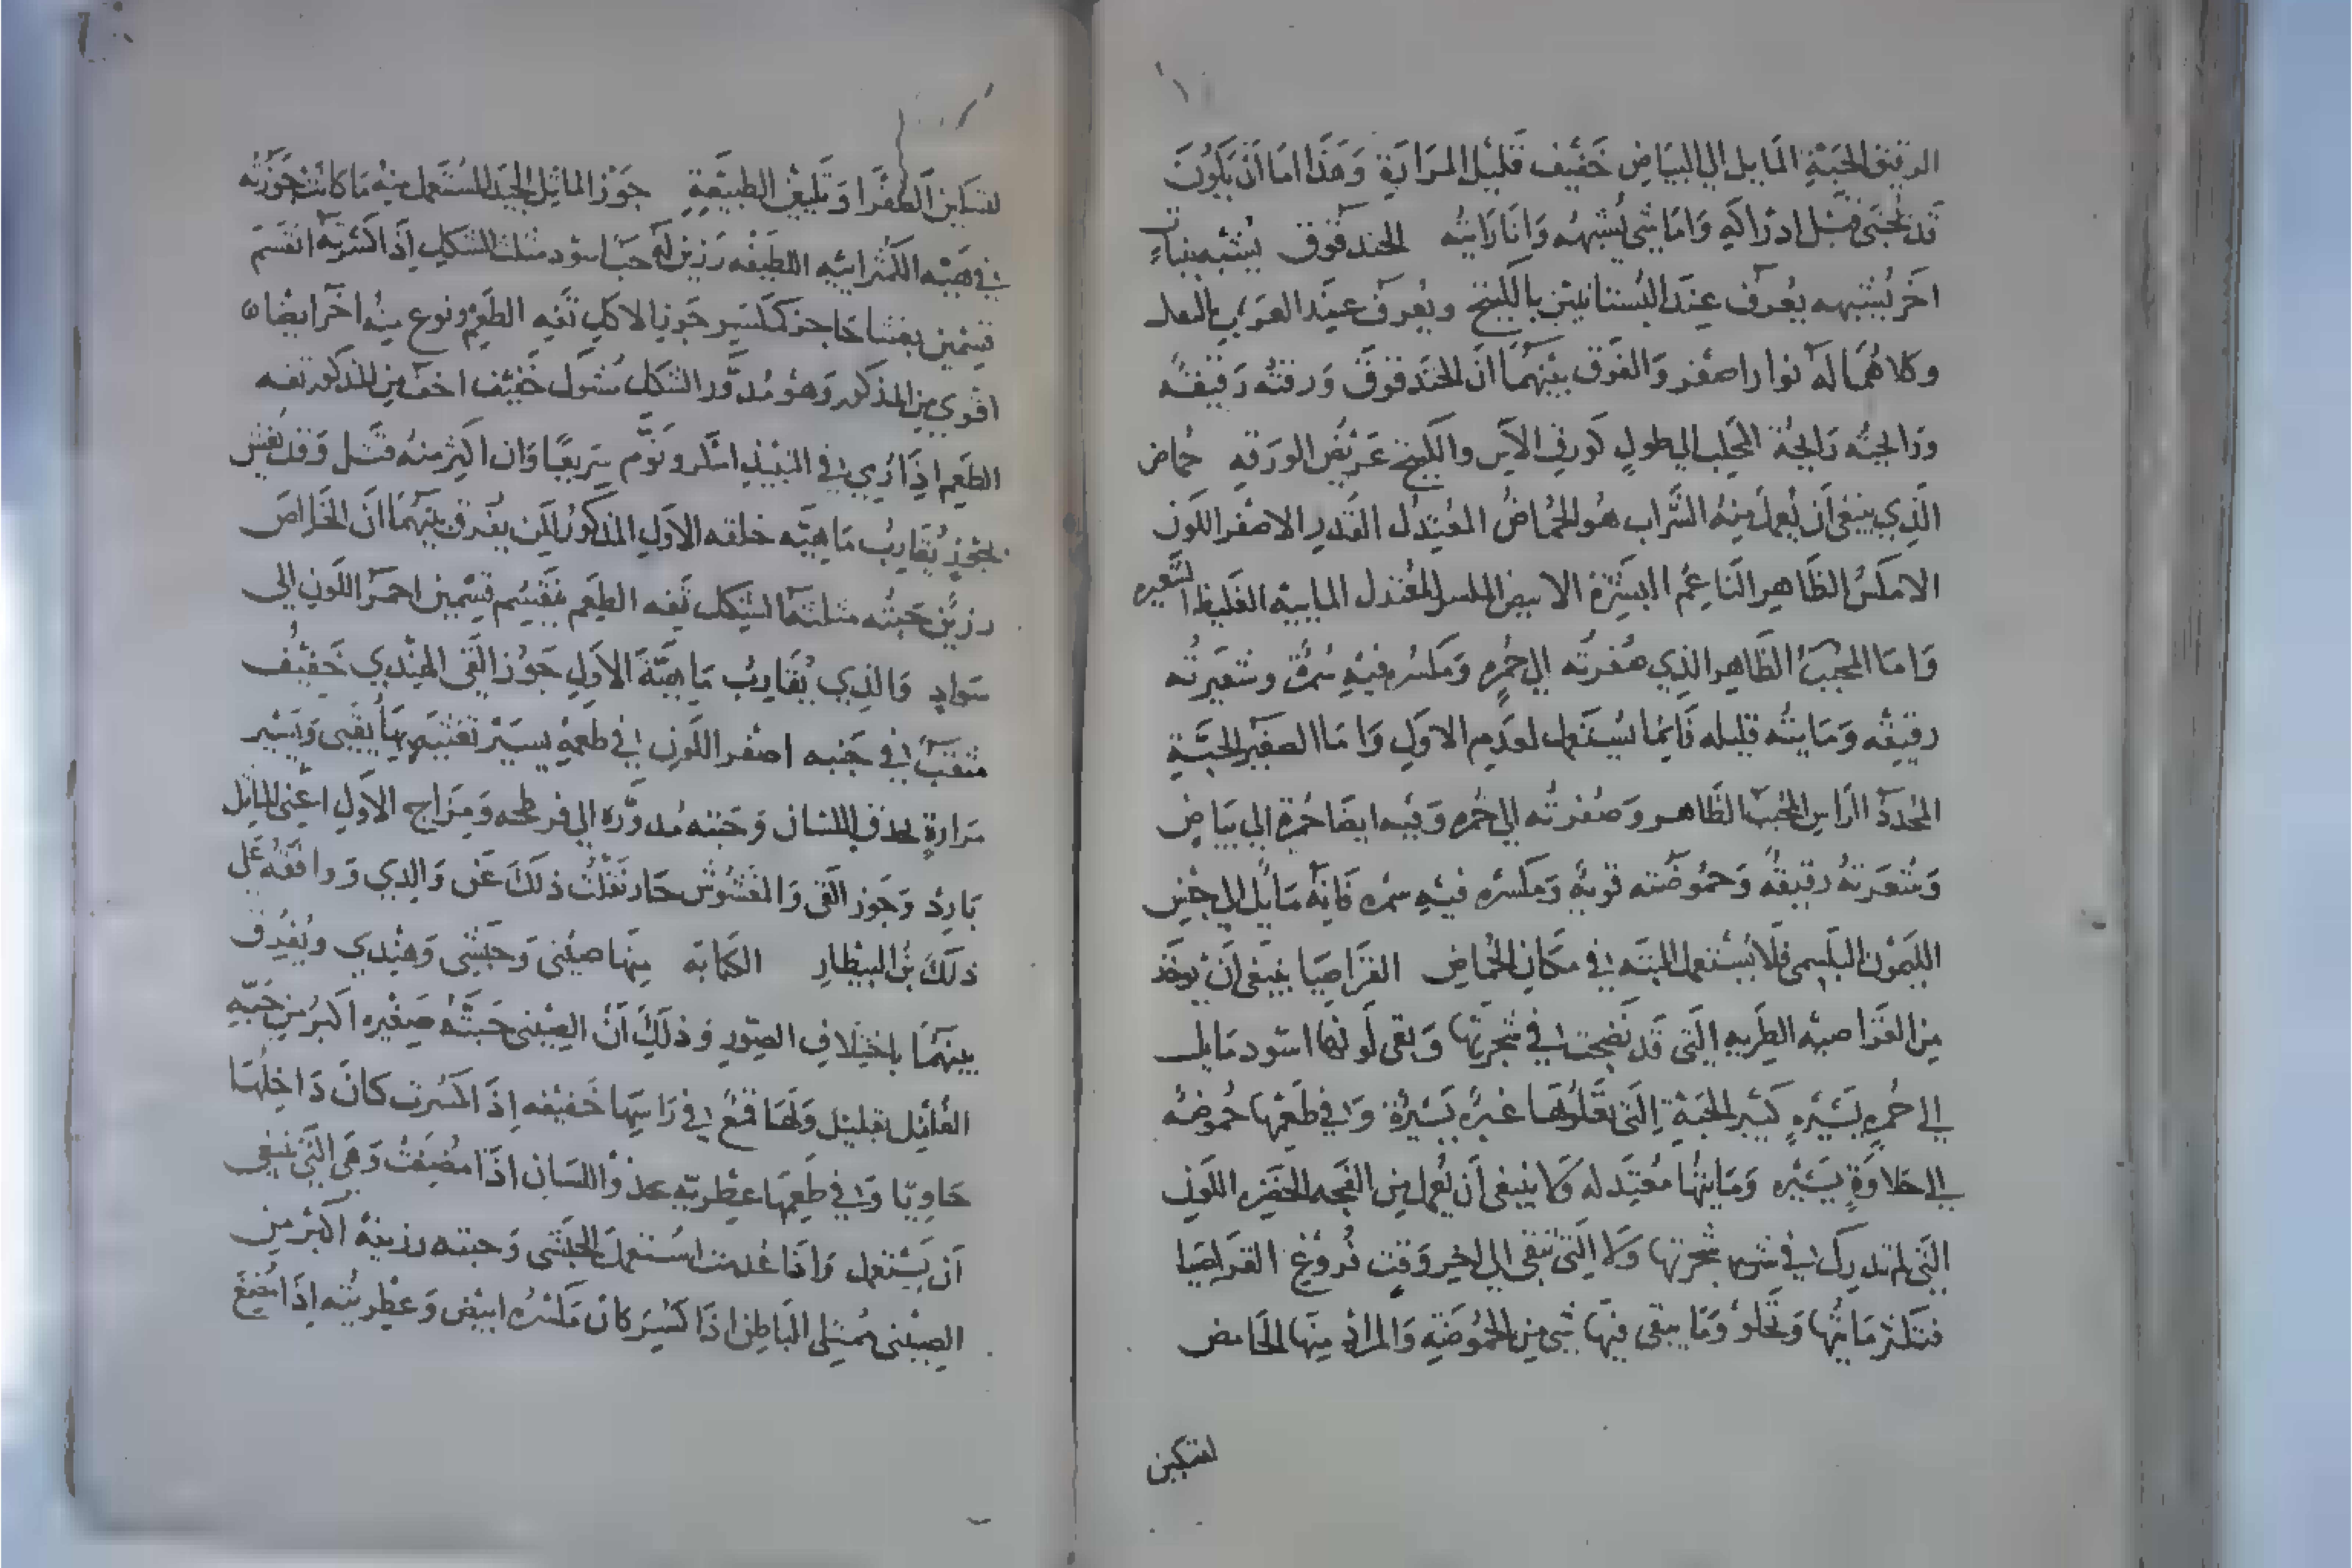 الدقيق الحبة المايل الى البياض خفيف قليل المرارة وهذا اما ان يكون
قد تجنى قبل ادراكه واما شي يشبهه وانا رايته الحندقوق يشبه بنبات
اخر يشبهه يعرف عند البستانيين بالكبنج ويعرف عند العرب بالنفل
وكلاهما له نوار اصفر والفرق بينهما ان الحندقوق ورقته رقيقه
ورايحته رايحة المحلب الى طول كورق الاس والكبنج عريض الورقه حماض
الذي ينبغي ان يعمل منه الشراب هو الحماض المعتدل القدر الاصفر اللون
الاملس الظاهر الناعم البشرة الابيض الملس المعتدل المابيه الغليظ الشعيره
واما المحبب الظاهر الذي صفرته الى حمره ومكسره فيه سمرة وشعيرته
رقيقه ومايته قليله فانما يستعمل لعدم الاول واما الصغير الحبة
المحدد الراس المحبب الظاهر وصفرته الى حمره وفيه ايضا حمرة الى بياض
وشعرته رقيقه وحموضته قوية ومكسره فيه سمره فانه مايل الى جنس
الليمون البلسمي فلا يستعمل البته في مكان الحماض القراصيا ينبغي ان يوخذ
من القراصيه الطريه التي قد نضجت في شجرتها وبقي لونها اسود مايل
الى حمره يسيره كبير الحبة التي تعلوها غبرة يسيرة وفي طعمها حموضه
الى حلاوة يسيره ومايتها معتدله ولا ينبغي ان يعمل من الفجه الخضره اللون
التي لم تدرك في شجرتها ولا التي تبقى الى اخر وقت فروغ القراصيا
فتكثر مايتها وتحلو وما يبقى فيها شي من الحموضه والمراد منها الحامض
لتسكين
لتسكين الصفرا وتليين الطبيعة جوز الماثل الجيد المستعمل منه ما كانت جوزته
في هيئه الكمثرايه اللطيفه رزين له حب اسود مثلث الشكل اذا كسرته انقسم
قسمين بغشا حاجز كسر جوز الاكل تفه الطعم ونوع منه اخر ايضا
اقوي من المذكور وهو مدور الشكل مشوك خفيف اخف من المذكور تفه
الطعم اذا رمي في النبيذ اسكر ونوم سريعا وان اكثر منه قتل وقد يغش
بجنس يقارب ماهيته خلقه الاول المذكور لكن يفرق بينهما ان الخالص
رزين حبته مثلثة الشكل تفه الطعم ينقسم قسمين احمر اللون الى
سواد والذي يقارب ماهية الاول جوز القي الهندي خفيف
مثقب في جنبه اصفر اللون في طعمه يسير تغثيه بها يقيى ويسير
مرارة يحذف اللسان وحبته مدوره الى فرطحه ومزاج الاول اعني الماثل
بارد وجوز القي والمغشوش حار نقلت ذلك عن والدي ووافقه على
ذلك بن البيطار الكبابه منها صيني وحبشي وهندي ويفرق
بينهما باختلاف الصور وذلك ان الصيني حبته صغيره اكبر من حبه
الفلفل بقليل ولها قمع في راسها خفيفه اذا كسرت كان داخلها
خاويا وفي طعمها عطريه تحذو اللسان اذا مضغت وهي التي ينبغي
ان يستعمل واذا عدمت استعمل الحبشي وحبته رزينة اكبر من
الصيني ممتلي الباطن اذا كسر كان مكسره ابيض وعطريته اذا مضغ